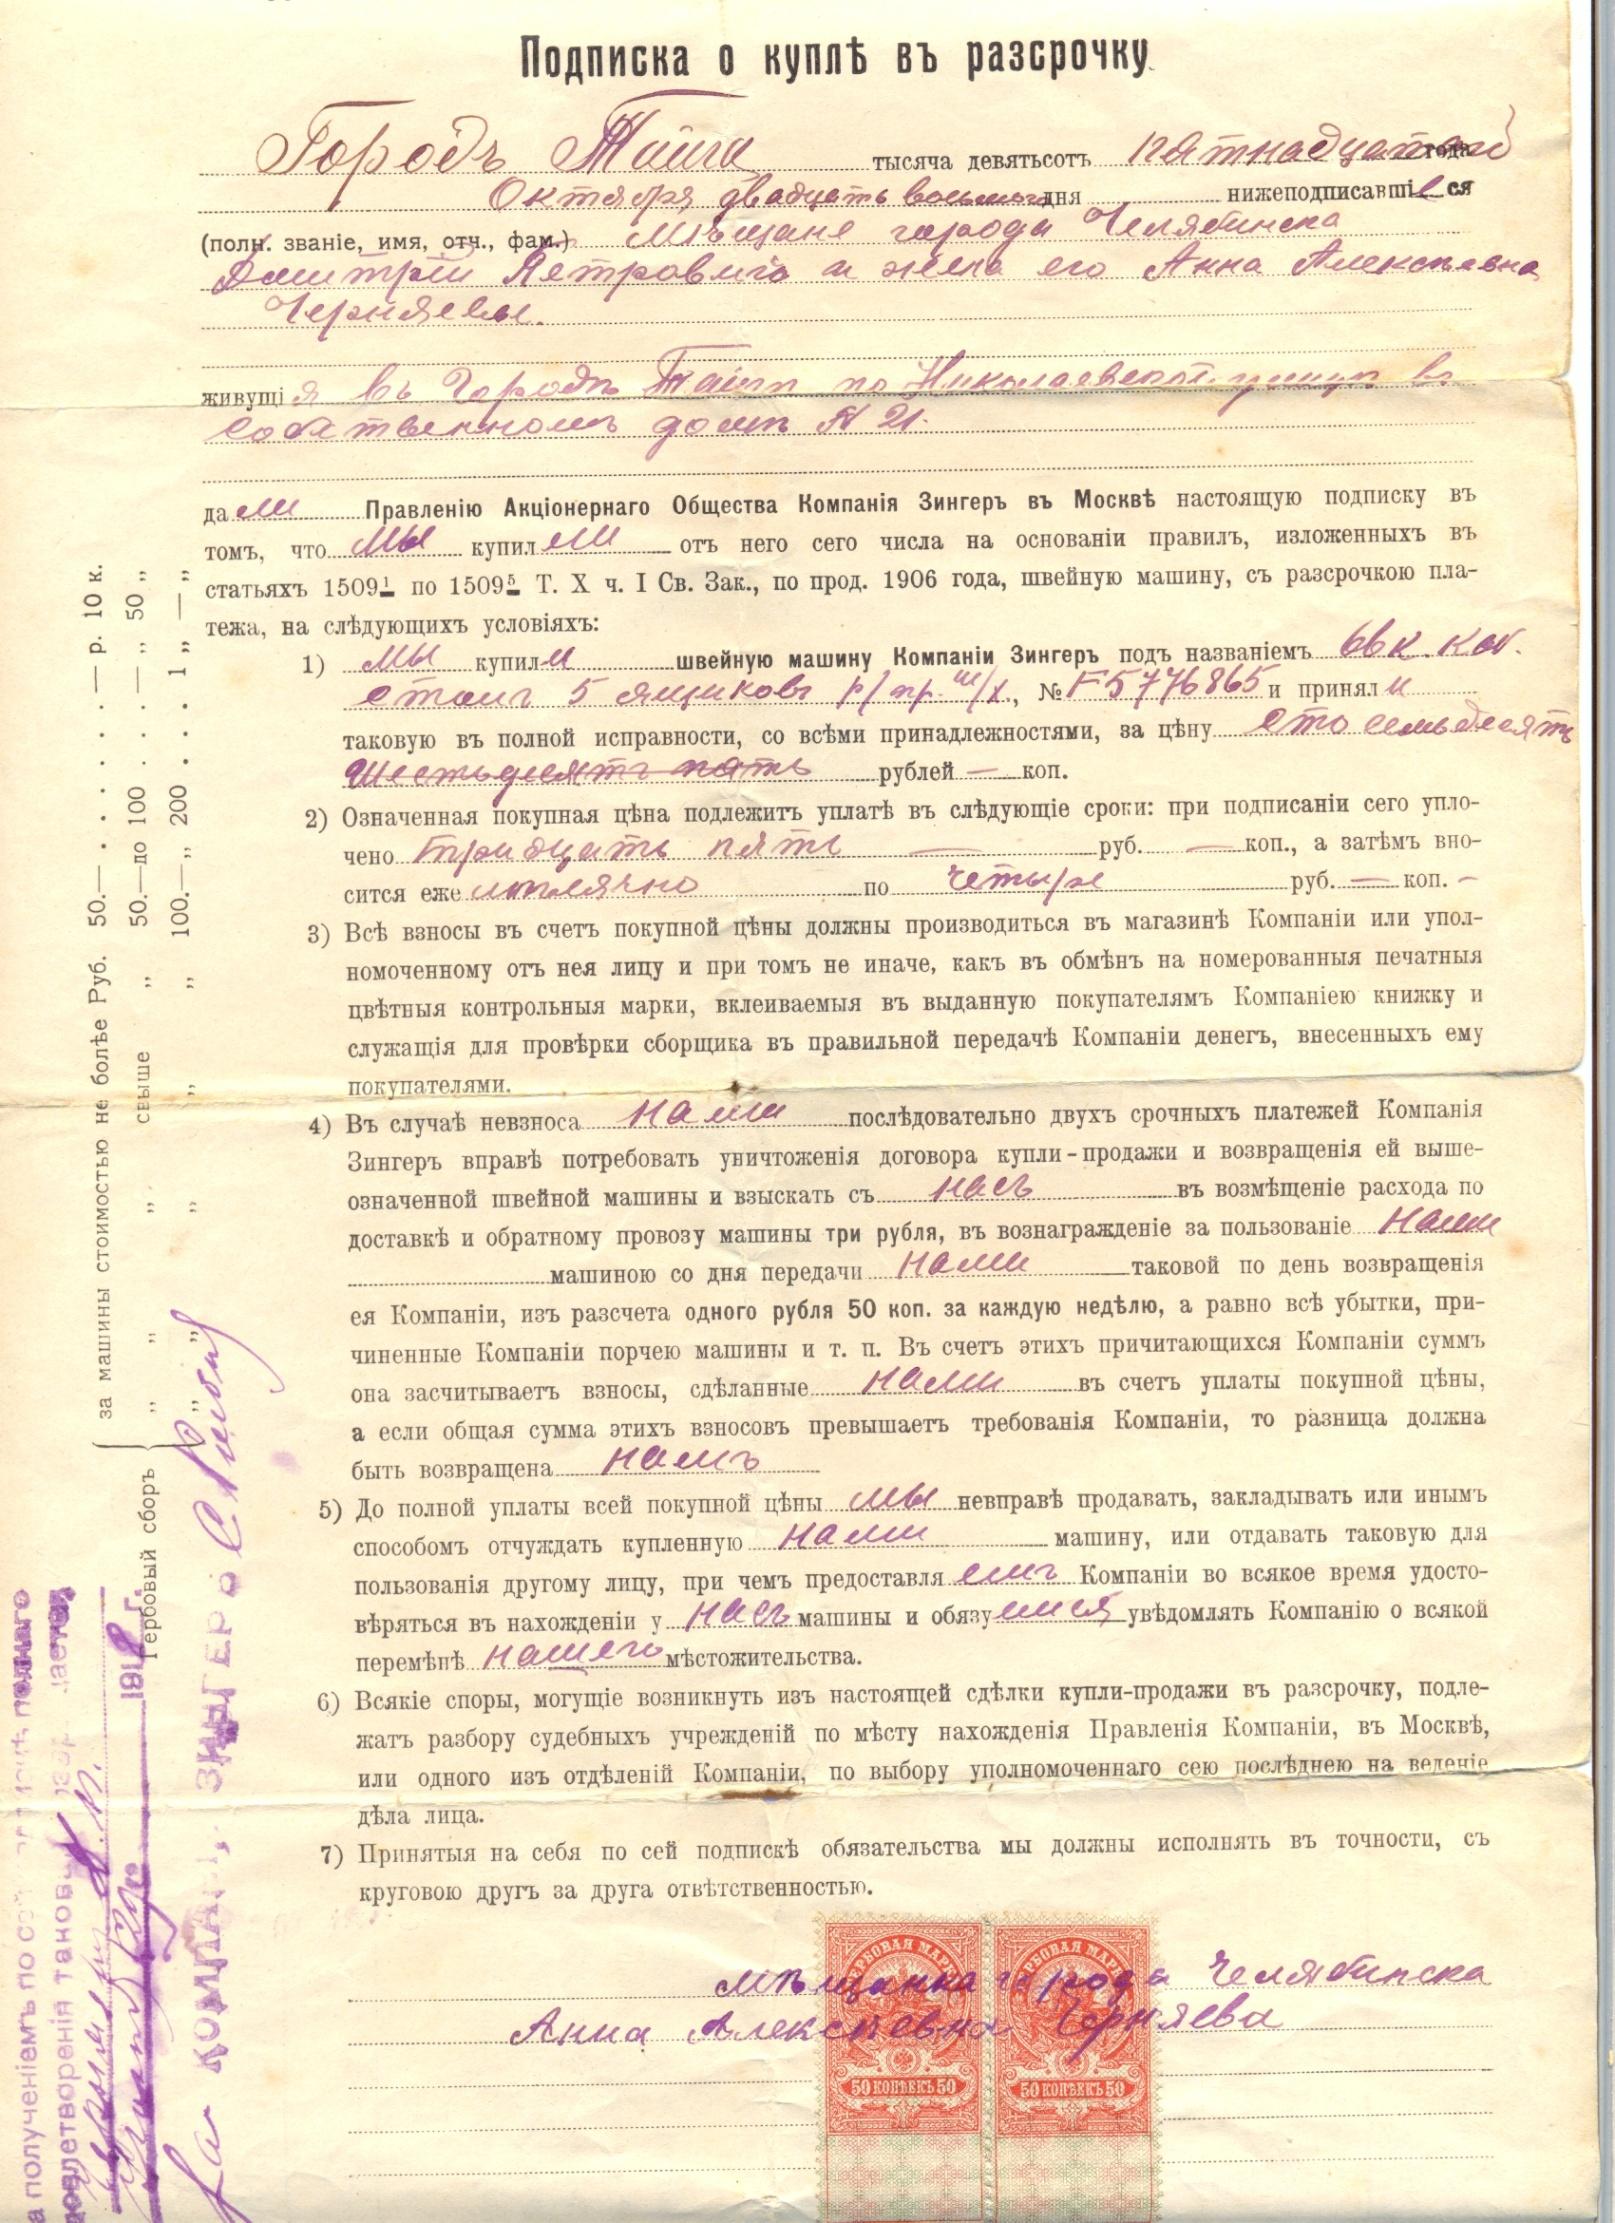 Подписка о куплѣ въ разсрочку
Городъ Тайга тысяча девятьсотъ пятнадцатый года
Октября двадцать восьмого дня нижеподписавшіеся
(полн. званіе, имя, отч., фам.) Мѣщане города Челябинска
Дмитрій Петровичъ и жена его Анна Алексѣевна
Черняевы.
живущія въ городѣ Тайгѣ по Николаевской улицѣ въ
собственномъ домѣ № 21.
дали Правленію Акціонернаго Общества Компанія Зингеръ въ Москвѣ настоящую подписку въ
томъ, что мы купили отъ него сего числа на основаніи правилъ, изложенныхъ въ
статьяхъ 1509¹ по 1509⁵ Т. X ч. I Св. Зак., по прод. 1906 года, швейную машину, съ разсрочкою пла-
тежа, на слѣдующихъ условіяхъ:
1) мы купили швейную машину Компаніи Зингеръ подъ названіемъ 66 к. каб.
столъ 5 ящиковъ р/ пр. ш/х., № F5776865 и приняли
таковую въ полной исправности, со всѣми принадлежностями, за цѣну сто семьдесятъ
шестьдесятъ пять рублей — коп.
2) Означенная покупная цѣна подлежитъ уплатѣ въ слѣдующіе сроки: при подписаніи сего упло-
чено тридцать пять — руб. — коп., а затѣмъ вно-
сится ежемѣсячно по четыре руб. — коп. –
3) Всѣ взносы въ счетъ покупной цѣны должны производиться въ магазинѣ Компаніи или упол-
номоченному отъ нея лицу и при томъ не иначе, какъ въ обмѣнъ на номерованныя печатныя
цвѣтныя контрольныя марки, вклеиваемыя въ выданную покупателямъ Компаніею книжку и
служащія для провѣрки сборщика въ правильной передачѣ Компаніи денегъ, внесенныхъ ему
покупателями.
4) Въ случаѣ невзноса нами послѣдовательно двухъ срочныхъ платежей Компанія
Зингеръ вправѣ потребовать уничтоженія договора купли-продажи и возвращенія ей выше-
означенной швейной машины и взыскать съ насъ въ возмѣщеніе расхода по
доставкѣ и обратному провозу машины три рубля, въ вознагражденіе за пользованіе нами
машиною со дня передачи нами таковой по день возвращенія
ея Компаніи, изъ разсчета одного рубля 50 коп. за каждую недѣлю, а равно всѣ убытки, при-
чиненные Компаніи порчею машины и т. п. Въ счетъ этихъ причитающихся Компаніи суммъ
она засчитываетъ взносы, сдѣланные нами въ счетъ уплаты покупной цѣны,
а если общая сумма этихъ взносовъ превышаетъ требованія Компаніи, то разница должна
быть возвращена намъ
5) До полной уплаты всей покупной цѣны мы невправѣ продавать, закладывать или инымъ
способомъ отчуждать купленную нами машину, или отдавать таковую для
пользованія другому лицу, при чемъ предоставляемъ Компаніи во всякое время удосто-
вѣряться въ нахожденіи у насъ машины и обязуемся увѣдомлять Компанію о всякой
перемѣнѣ нашего мѣстожительства.
6) Всякіе споры, могущіе возникнуть изъ настоящей сдѣлки купли-продажи въ разсрочку, подле-
жатъ разбору судебныхъ учрежденій по мѣсту нахожденія Правленія Компаніи, въ Москвѣ,
или одного изъ отдѣленій Компаніи, по выбору уполномоченнаго сею послѣднею на веденіе
дѣла лица.
7) Принятыя на себя по сей подпискѣ обязательства мы должны исполнять въ точности, съ
круговою другъ за друга отвѣтственностью.
Мѣщанка города Челябинска
Анна Алексѣевна Черняева
ГЕРБОВАЯ МАРКА ГЕРБОВАЯ МАРКА
50 КОПѢЕКЪ 50 50 КОПѢЕКЪ 50
Гербовый сборъ
за машины стоимостью не болѣе Руб. 50.— . . . . . — р. 10 к.
„ „ „ свыше „ 50.—до 100 . . . — „ 50 „
„ „ „ „ „ 100.—„ 200 . . . 1 „ — „
За полученіемъ по сей полнаго
удовлетворенія таковая
1918 г.
За КОМПАНІЮ ЗИНГЕРЪ